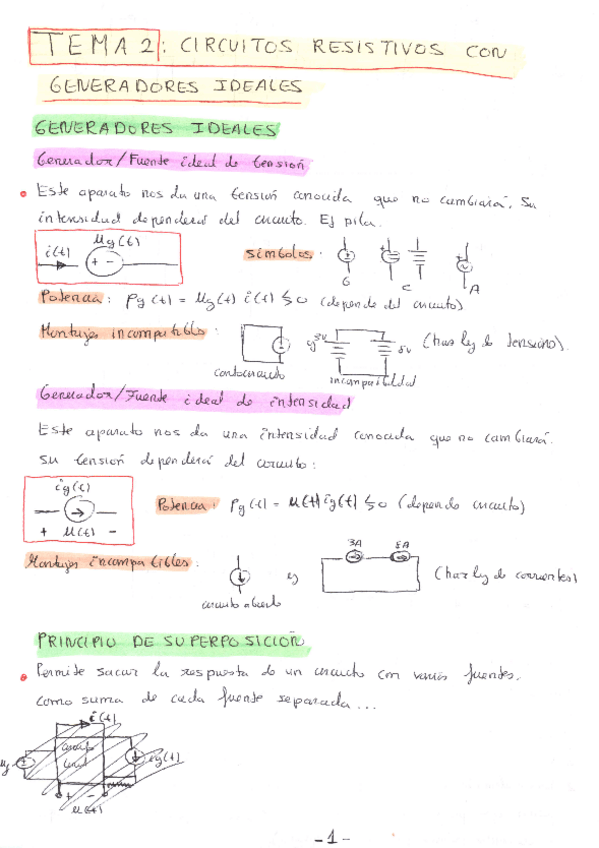 TEMA 2: CIRCUITOS RESISTIVOS CON
GENERADORES IDEALES
GENERADORES IDEALES
Generador/Fuente ideal de tensión
• Este aparato nos da una tensión conocida que no cambiará. Su
intensidad dependerá del circuito. Ej pila.
i(t)
ug(t)
+ -
Símbolos:
G
C
A
Potencia: pg(t) = ug(t) i(t) ≶ 0 (depende del circuito)
Montajes incompatibles:
cortocircuito
ej
3V
5V
incompatibilidad
(haz ley de tensiones).
Generador/Fuente ideal de intensidad
Este aparato nos da una intensidad conocida que no cambiará.
Su tensión dependerá del circuito:
ig(t)
+ u(t) -
Potencia: pg(t) = u(t) ig(t) ≶ 0 (depende circuito)
Montajes incompatibles:
circuito abierto
ej
3A
5A
(haz ley de corrientes)
PRINCIPIO DE SUPERPOSICIÓN
• Permite sacar la respuesta de un circuito con varias fuentes,
como suma de cada fuente separada...
i(t)
ug
ig(t)
+ -
u(t)
-1-